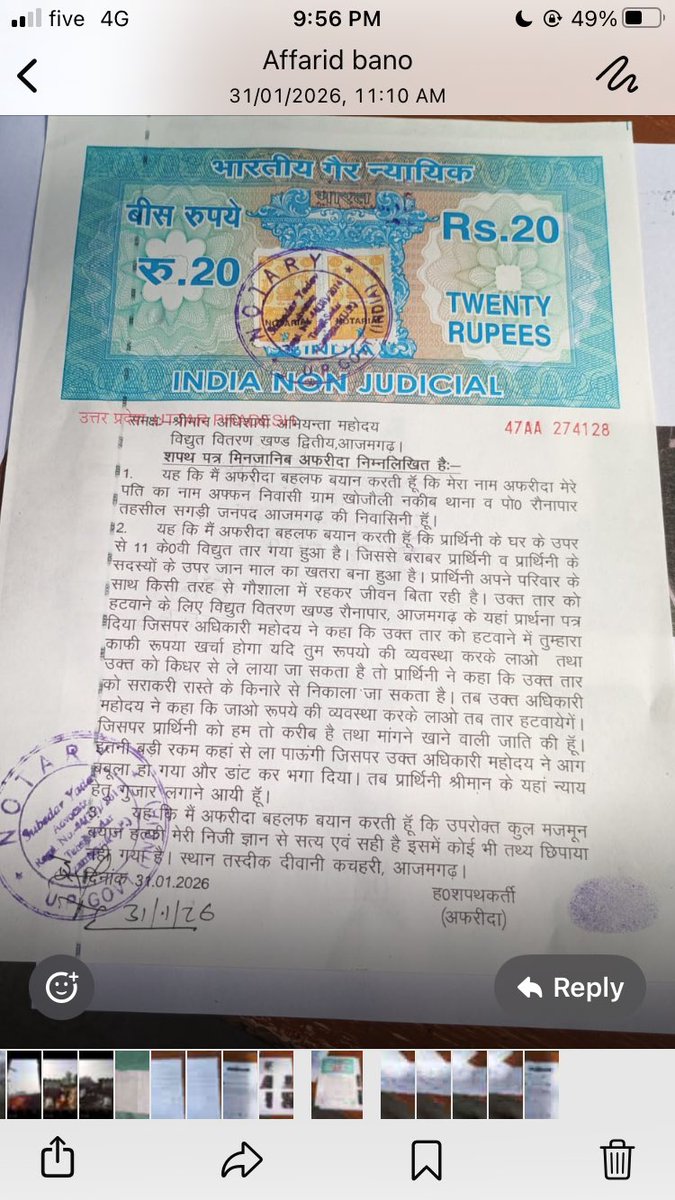 five 4G
9:56 PM
49%
Affarid bano
31/01/2026, 11:10 AM
भारतीय गैर न्यायिक
भारत
बीस रुपये
Rs.20
रु.20
TWENTY
RUPEES
NOTARY
NOTARIAL
INDIA
INDIA NON JUDICIAL
उत्तर प्रदेश UTTAR PRADESH
47AA 274128
समक्षः श्रीमान अधिशाषी अभियन्ता महोदय
विद्युत वितरण खण्ड द्वितीय,आजमगढ़।
शपथ पत्र मिनजानिब अफरीदा निम्नलिखित हैः–
1. यह कि मैं अफरीदा बहलफ बयान करती हूँ कि मेरा नाम अफरीदा मेरे
पति का नाम अफ्फन निवासी ग्राम खोजौली नकीब थाना व पो0 रौनापार
तहसील सगड़ी जनपद आजमगढ़ की निवासिनी हूँ।
2. यह कि मैं अफरीदा बहलफ बयान करती हूँ कि प्रार्थिनी के घर के उपर
से 11 के0वी विद्युत तार गया हुआ है। जिससे बराबर प्रार्थिनी व प्रार्थिनी के
सदस्यों के उपर जान माल का खतरा बना हुआ है। प्रार्थिनी अपने परिवार के
साथ किसी तरह से गौशाला में रहकर जीवन बिता रही है। उक्त तार को
हटवाने के लिए विद्युत वितरण खण्ड रौनापार, आजमगढ़ के यहां प्रार्थना पत्र
दिया जिसपर अधिकारी महोदय ने कहा कि उक्त तार को हटवाने में तुम्हारा
काफी रूपया खर्चा होगा यदि तुम रूपयो की व्यवस्था करके लाओ तथा
उक्त को किधर से ले लाया जा सकता है तो प्रार्थिनी ने कहा कि उक्त तार
को सराकरी रास्ते के किनारे से निकाला जा सकता है। तब उक्त अधिकारी
महोदय ने कहा कि जाओ रूपये की व्यवस्था करके लाओ तब तार हटवायेगें।
जिसपर प्रार्थिनी को हम तो करीब है तथा मांगने खाने वाली जाति की हूँ।
इतनी बड़ी रकम कहां से ला पाऊंगी जिसपर उक्त अधिकारी महोदय ने आग
बबूला हो गया और डांट कर भगा दिया। तब प्रार्थिनी श्रीमान के यहां न्याय
हेतु गुजार लगाने आयी हूँ।
यह कि मैं अफरीदा बहलफ बयान करती हूँ कि उपरोक्त कुल मजमून
बयान हल्फी मेरी निजी ज्ञान से सत्य एवं सही है इसमें कोई भी तथ्य छिपाया
नही गया है। स्थान तस्दीक दीवानी कचहरी, आजमगढ़।
दिनांक 31.01.2026
ह0शपथकर्ती
(अफरीदा)
NOTARY
Subedar Yadav
Advocate
U.P. GOVT
31/1/26
Reply